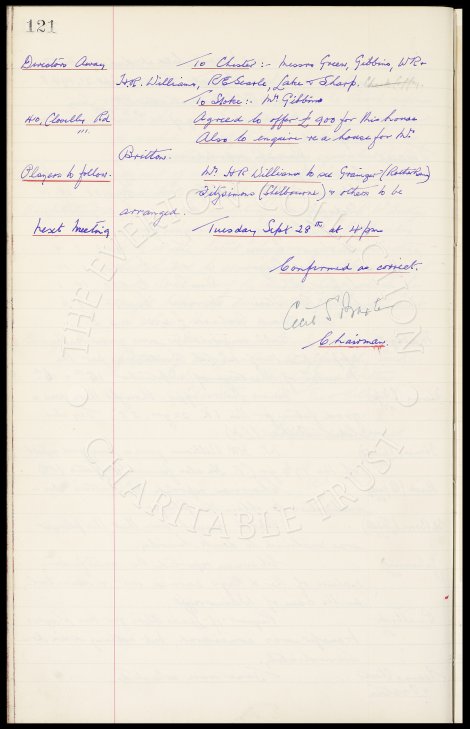 121
Directors Away To Chester :- Messrs Green, Gibbins, W R &
H.R. Williams, R E Searle, Lake & Sharp.
To Stoke :- Mr Gibbins
40, Clovelly Rd Agreed to offer £900 for this house
Also to enquire re a house for Mr
Britton.
Players to follow. Mr H R Williams to see Grainger (Rotherham)
Fitzsimons (Shelbourne) & others to be
arranged.
Next Meeting Tuesday Sept 28th at 4 pm
Confirmed as correct.
Cecil S Baxter
Chairman.
THE EVERTON COLLECTION
CHARITABLE TRUST